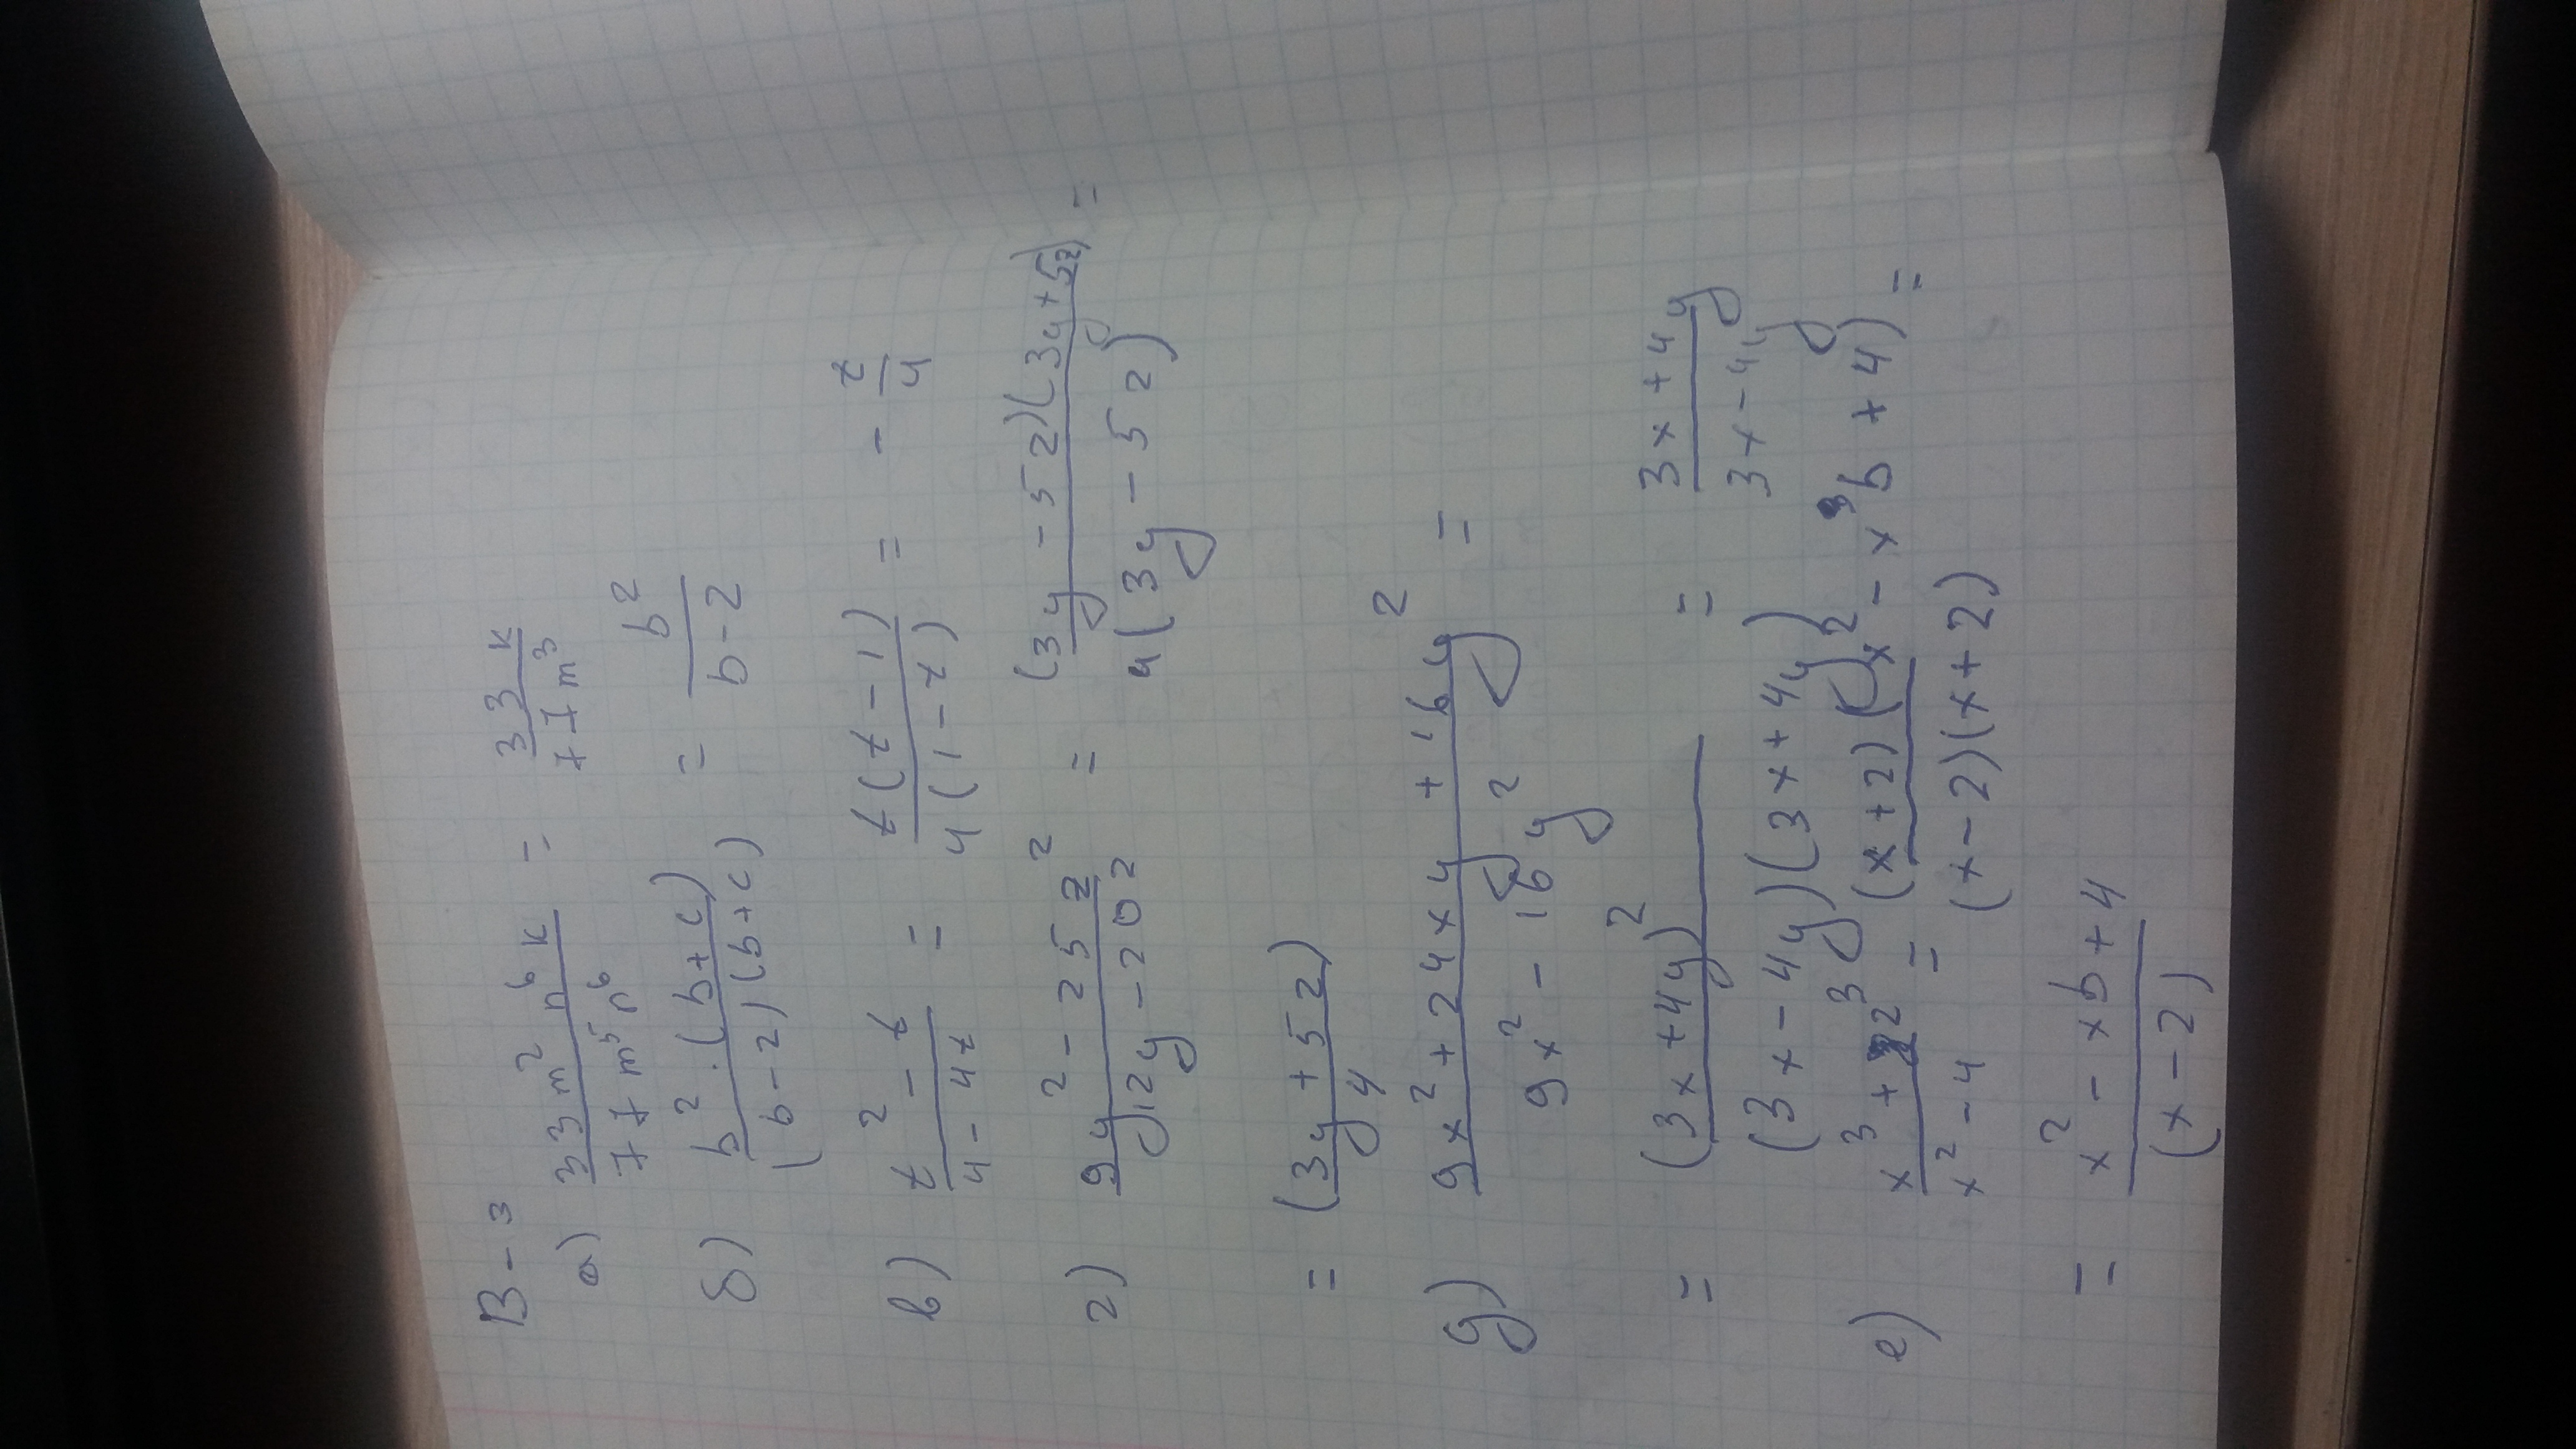 В-3
а) 33m²n⁶к / 77m⁵n⁶ = 33к / 77m³
б) b²·(b+c) / (b-2)(b+c) = b² / b-2
в) t²-t / 4-4t = t(t-1) / 4(1-t) = - t/4
г) 9y²-25z² / 12y-20z = (3y-5z)(3y+5z) / 4(3y-5z) =
= (3y+5z) / 4
д) 9x²+24xy+16y² / 9x²-16y² =
= (3x+4y)² / (3x-4y)(3x+4y) = 3x+4y / 3x-4y
е) x³+2³ / x²-4 = (x+2)(x²-x³b+4) / (x-2)(x+2) =
= x²-xb+4 / (x-2)